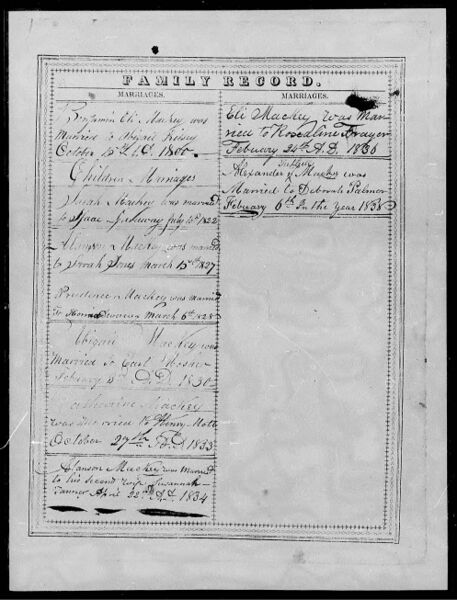 FAMILY RECORD.
MARRIAGES.
Benjamin Eli Mackey was
Married to Abigail
October 15th A.D. 1800.
Children Marriages
Sarah Mackey was married
to Isaac July 15th 1822
Alanson Mackey was married
to Sarah Jones March 15th 1827
Prudence Mackey was Married
To March 6th 1828
Abigail Mackey was
Married to Hosher
February A.D. 1830
Catherine Mackey
was Married to Henry Mott
October 27th A.D. 1833
Alanson Mackey was Married
to his second wife Susannah
Tanner April 22th A.D. 1834
MARRIAGES.
Eli Mackey was Mar
ried to Rosaline Frayer
Febuary 24th A.D. 1836
Alexander Mackey was
Married to Deborah Palmer
Febuary 6th In the year 1838